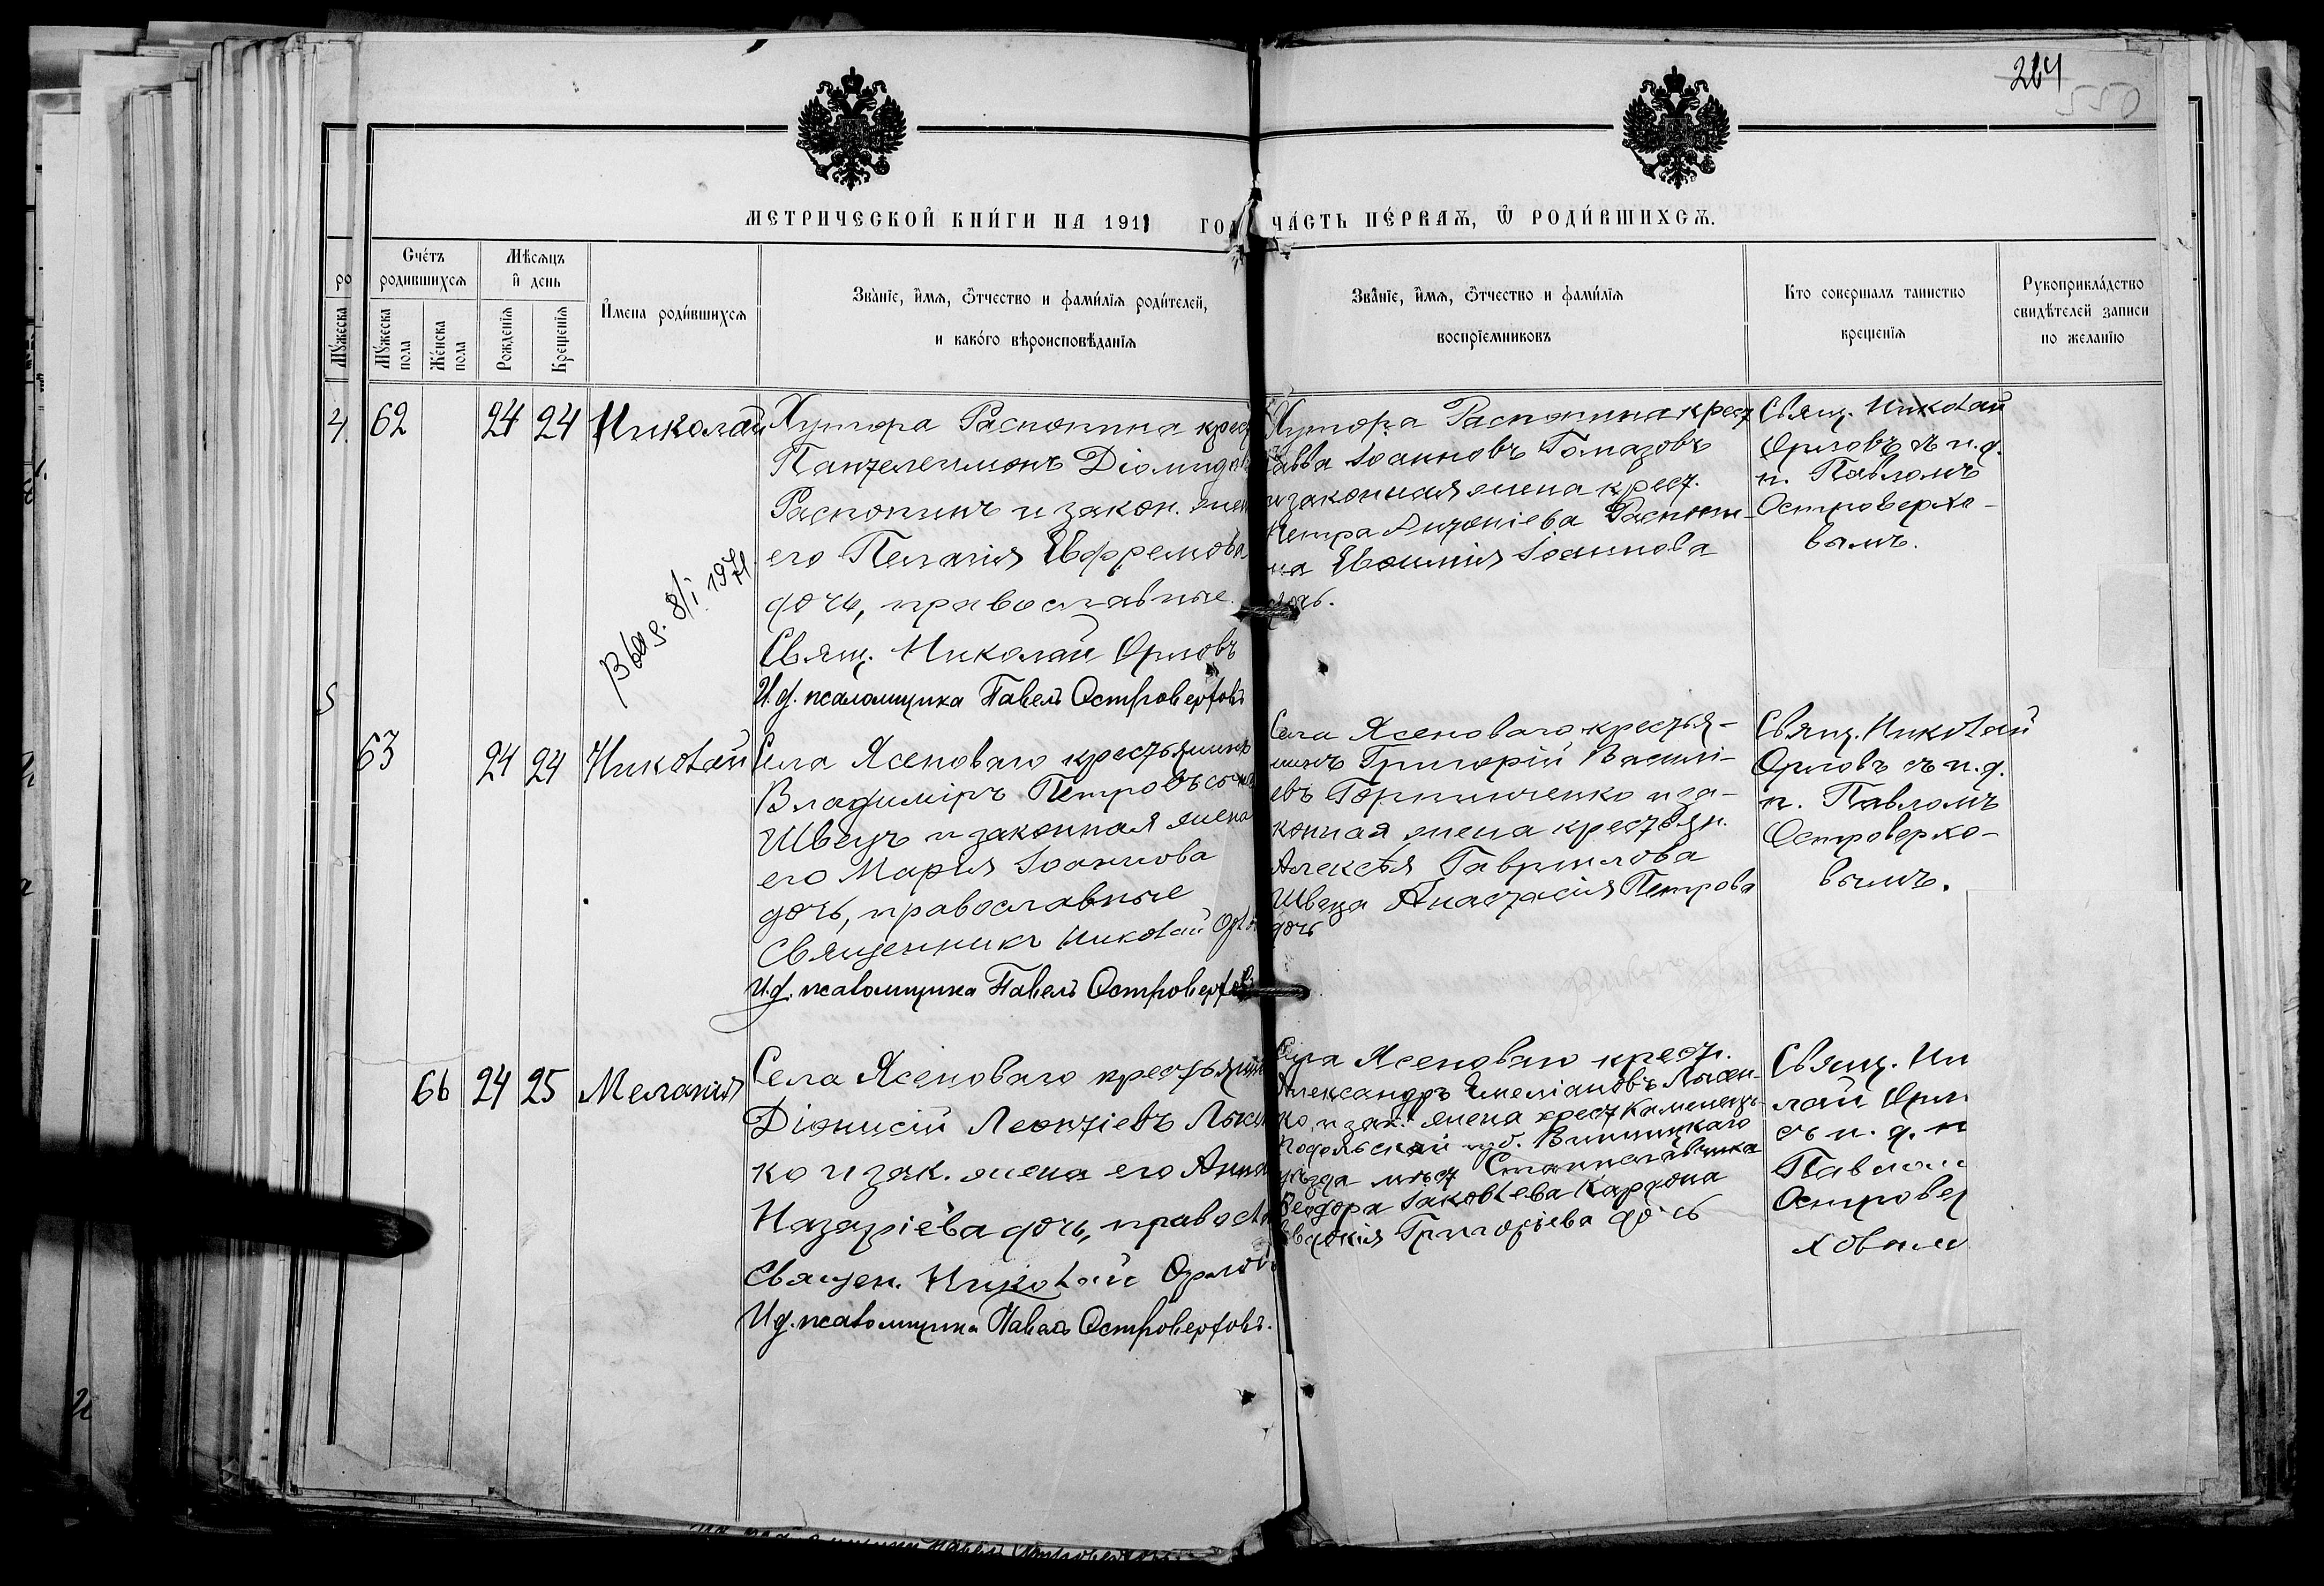 264
550
МЕТРИЧЕСКОЙ КНИ́ГИ НА 1911 ГОД ЧА́СТЬ ПЕ́РВАѦ, Ѿ РОДИ́ВШИХСѦ.
ро
Мꙋжеска
Сче́тъ родившихсѧ
Мꙋжеска пола
Же́нска пола
Мѣсѧцъ и день
Рожденїѧ
Крещенїѧ
Имена роди́вшихсѧ
Зва́нїе, и́мѧ, ѻ́тчество и фами́лїѧ роди́телей,
и како́го вѣроисповѣ́данїѧ
Зва́нїе, и́мѧ, ѻ́тчество и фами́лїѧ
воспрїемниковъ
Кто совершалъ таинство
крещенїѧ
Рукоприкла́дство
свидѣ́телей записи
по желанїю
4
62
24 24
Николай
Хутора Распопина крест
Пантелеимонъ Діомидовъ
Распопинъ и закон. жена
его Пелагія Ефремова
дочь, православные.
Свящ. Николай Орловъ
И.д. псаломщика Павелъ Островерховъ
Выд. 8/I 1971
Хутора Распопина крест
Савва Іоанновъ Гомазовъ
и законная жена крест.
Петра Антоніева Распопи-
на Евфимія Іоаннова
дочь.
Свящ. Николай
Орловъ съ и.д.
п. Павломъ
Островерхо-
вымъ.
5
63
24 24
Николай
Села Ясеноваго крестьянинъ
Владиміръ Петровъ сынъ
Швецъ и законная жена
его Марія Іоаннова
дочь, православные
Священникъ Николай Орлов
И.д. псаломщика Павелъ Островерховъ
Села Ясеноваго крестья-
нинъ Григорій Васильі-
евъ Горпинченко и за-
конная жена крестьян.
Алексѣя Гаврилова
Швеца Анастасія Петрова
дочь
Свящ. Николай
Орловъ съ и.д.
п. Павломъ
Островерхо-
вымъ.
66
24 25
Меланія
Села Ясеноваго крестьянин
Діонисій Леонтіевъ Лысен
ко и зак. жена его Анна
Назаріева дочь, правосл
Священ. Николай Орлов
И.д. псаломщика Павелъ Островерховъ.
Села Ясеноваго крест.
Александръ Емеліановъ Лысен-
ко, и зак. жена крест Каменецъ-
Подольской губ. Винницкаго
уѣзда мѣст Станиславчика
Ѳеодора Іаковлева Кардона
Евдокія Григоріева дочь
Свящ. Ни
лай Орл
съ и. д. п
Павлом
Островер
ховым